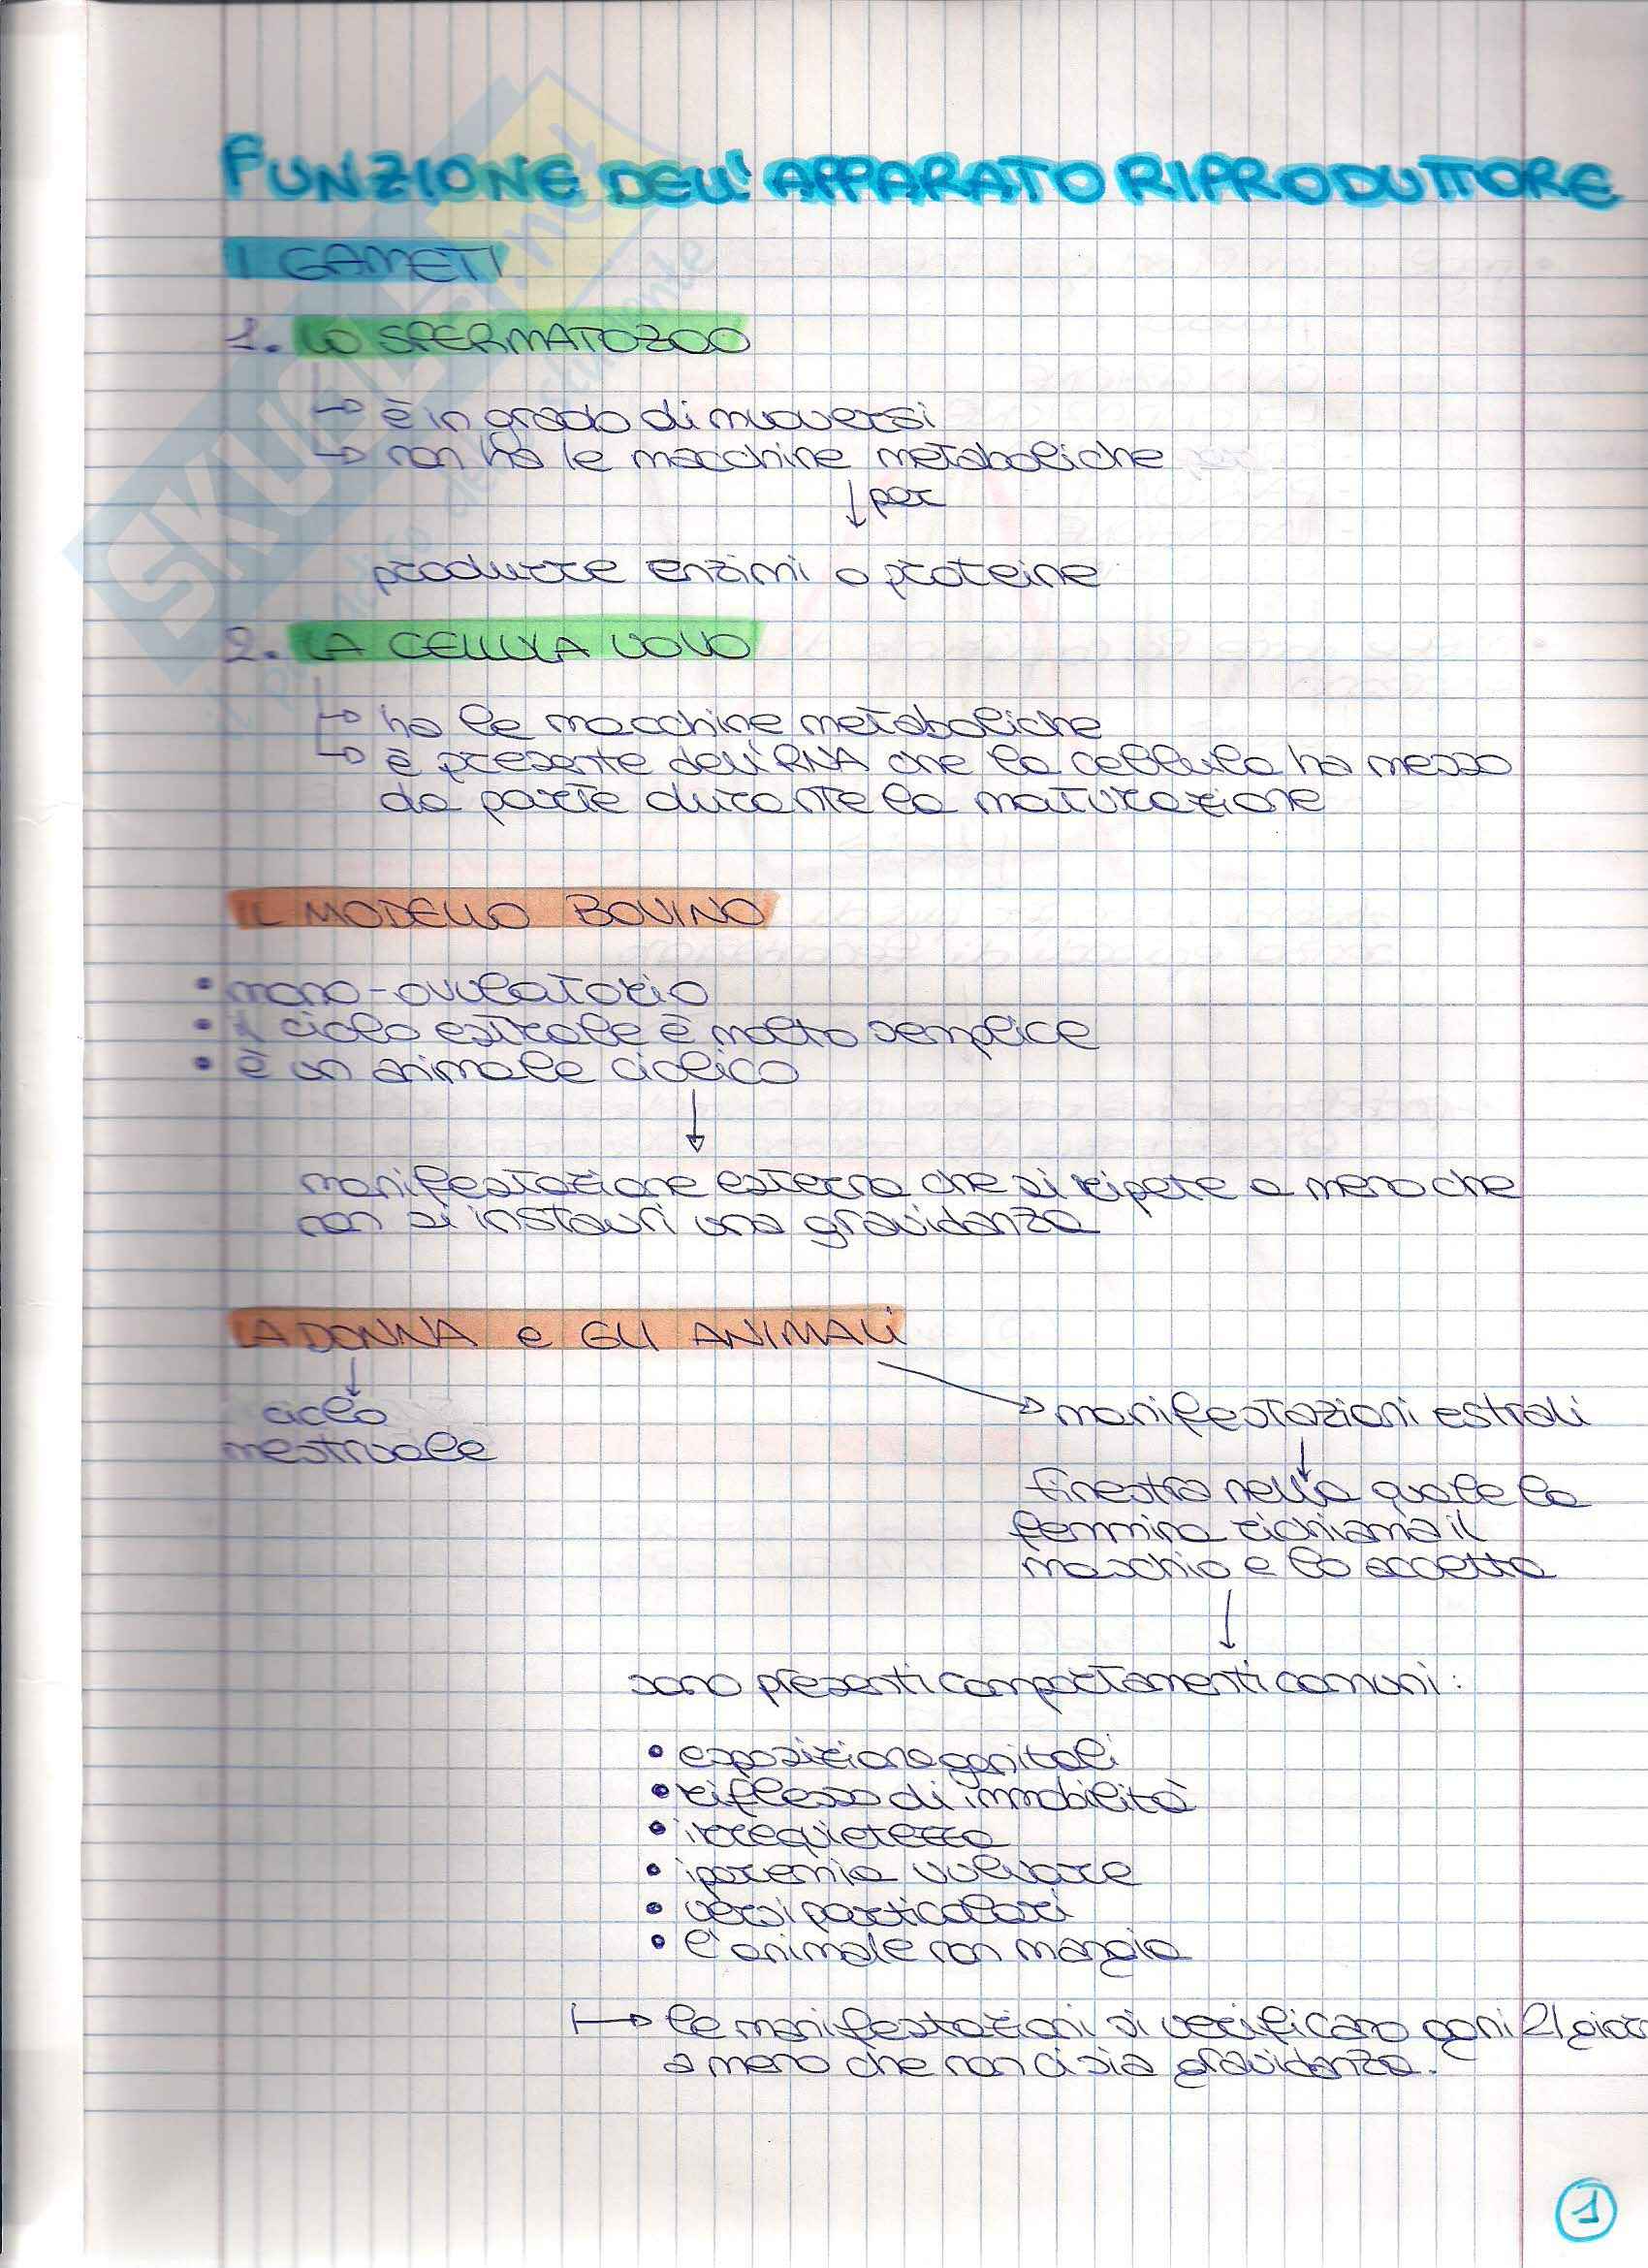 FUNZIONE DELL'APPARATO RIPRODUTTORE
I GAMETI
1. LO SPERMATOZOO
→ è in grado di muoversi
→ non ha le macchine metaboliche
↓ per
produrre enzimi o proteine
2. LA CELLULA UOVO
→ ha le macchine metaboliche
→ è presente dell'RNA che la cellula ha messo
da parte durante la maturazione
IL MODELLO BOVINO
• mono-ovulatorio
• il ciclo estrale è molto semplice
• è un animale ciclico
↓
manifestazione esterna che si ripete a meno che
non si instauri una gravidanza
LA DONNA e GLI ANIMALI
ciclo
mestruale
→ manifestazioni estrali
↓
finestra nella quale la
femmina richiama il
maschio e lo accetta
↓
sono presenti comportamenti comuni:
• esposizione genitali
• riflesso di immobilità
• irrequietezza
• iperemia vulvare
• versi particolari
• l'animale non mangia
→ le manifestazioni si verificano ogni 21 gior
a meno che non ci sia gravidanza.
1
SKUOLA.net
il paradiso dello studente